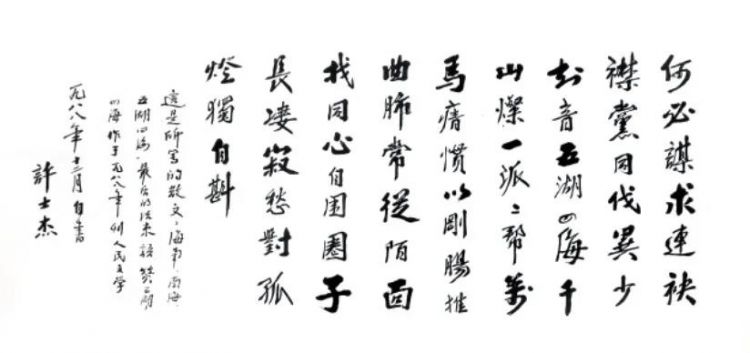 何必謀求連袂
襟黨同伐異少
知音五湖四海千
山燦一派〻帮萬
馬瘖慣以剛腸推
曲肺常從陌面
找同心自困圈子
長凄寂愁對孤
燈獨自斟
這是所寫的散文，海南，南海
五湖四海，最后的结束語
四海作于一九八八年刊人民文学
一九八八年十二月自書
許士杰